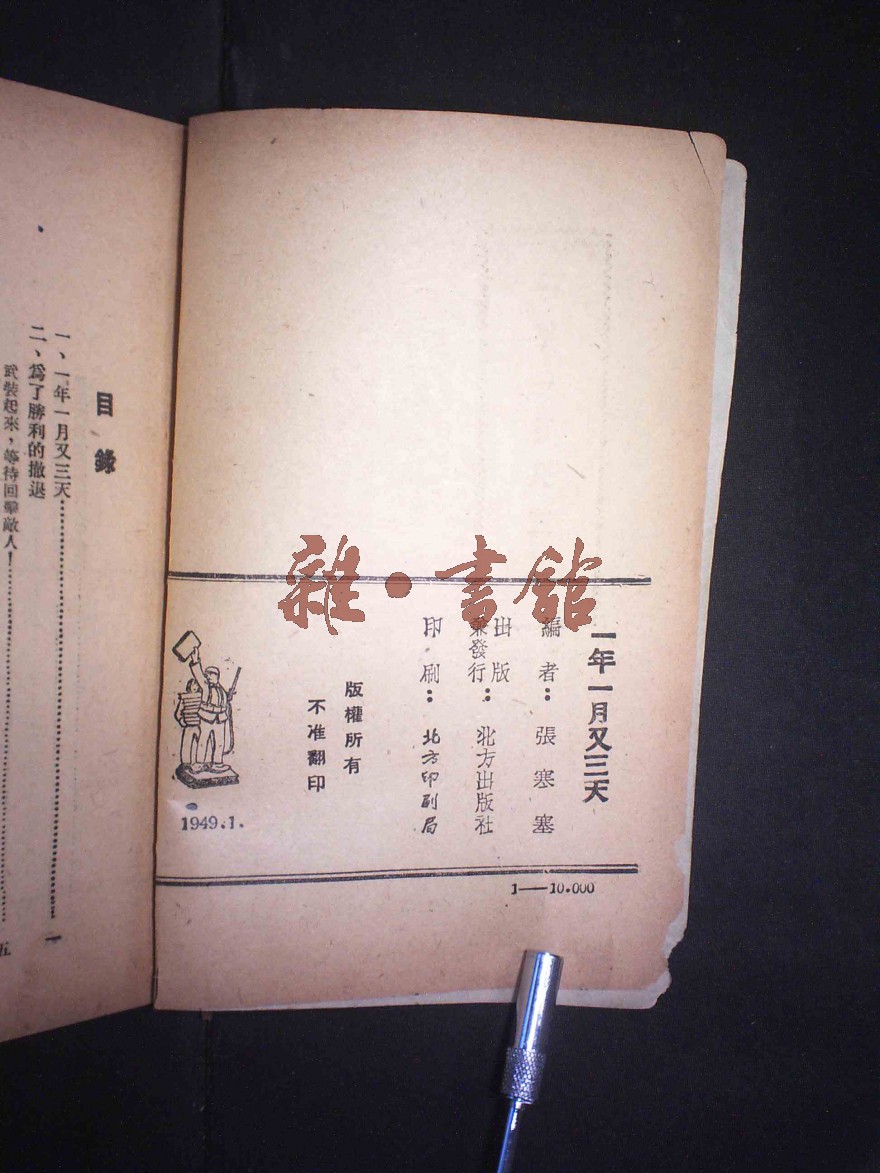 一年一月又三天
編者：張寒塞
出版
兼發行：北方出版社
印刷：北方印刷局
版權所有
不准翻印
1949.1.
1——10.000
目錄
一、一年一月又三天……一
二、爲了勝利的撤退
武裝起來，等待回擊敵人！……五
雜·書館